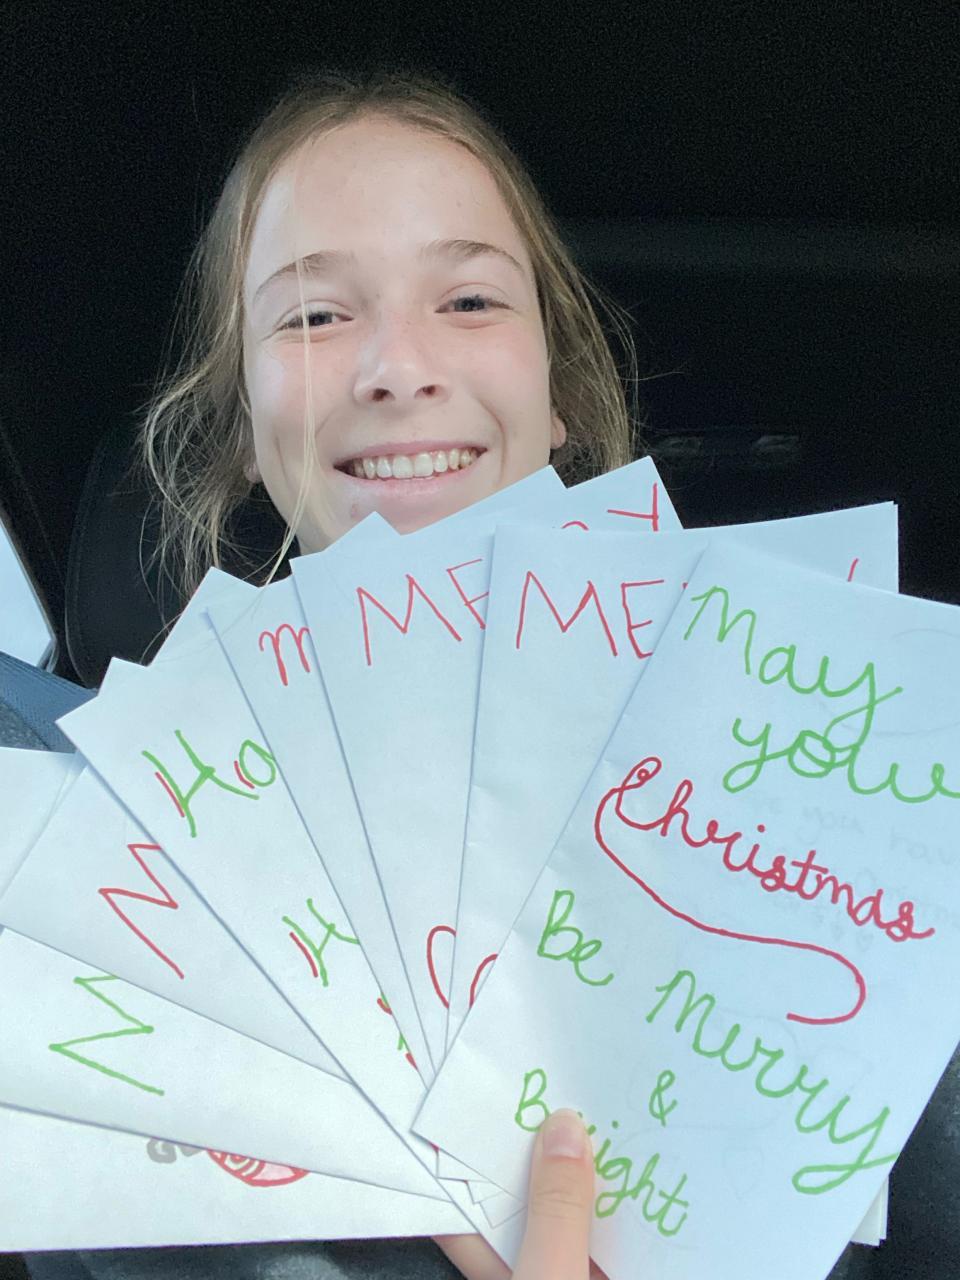 May
your
Christmas
Be Merry
&
Bright
ME
ME
m
Ha
H
M
M